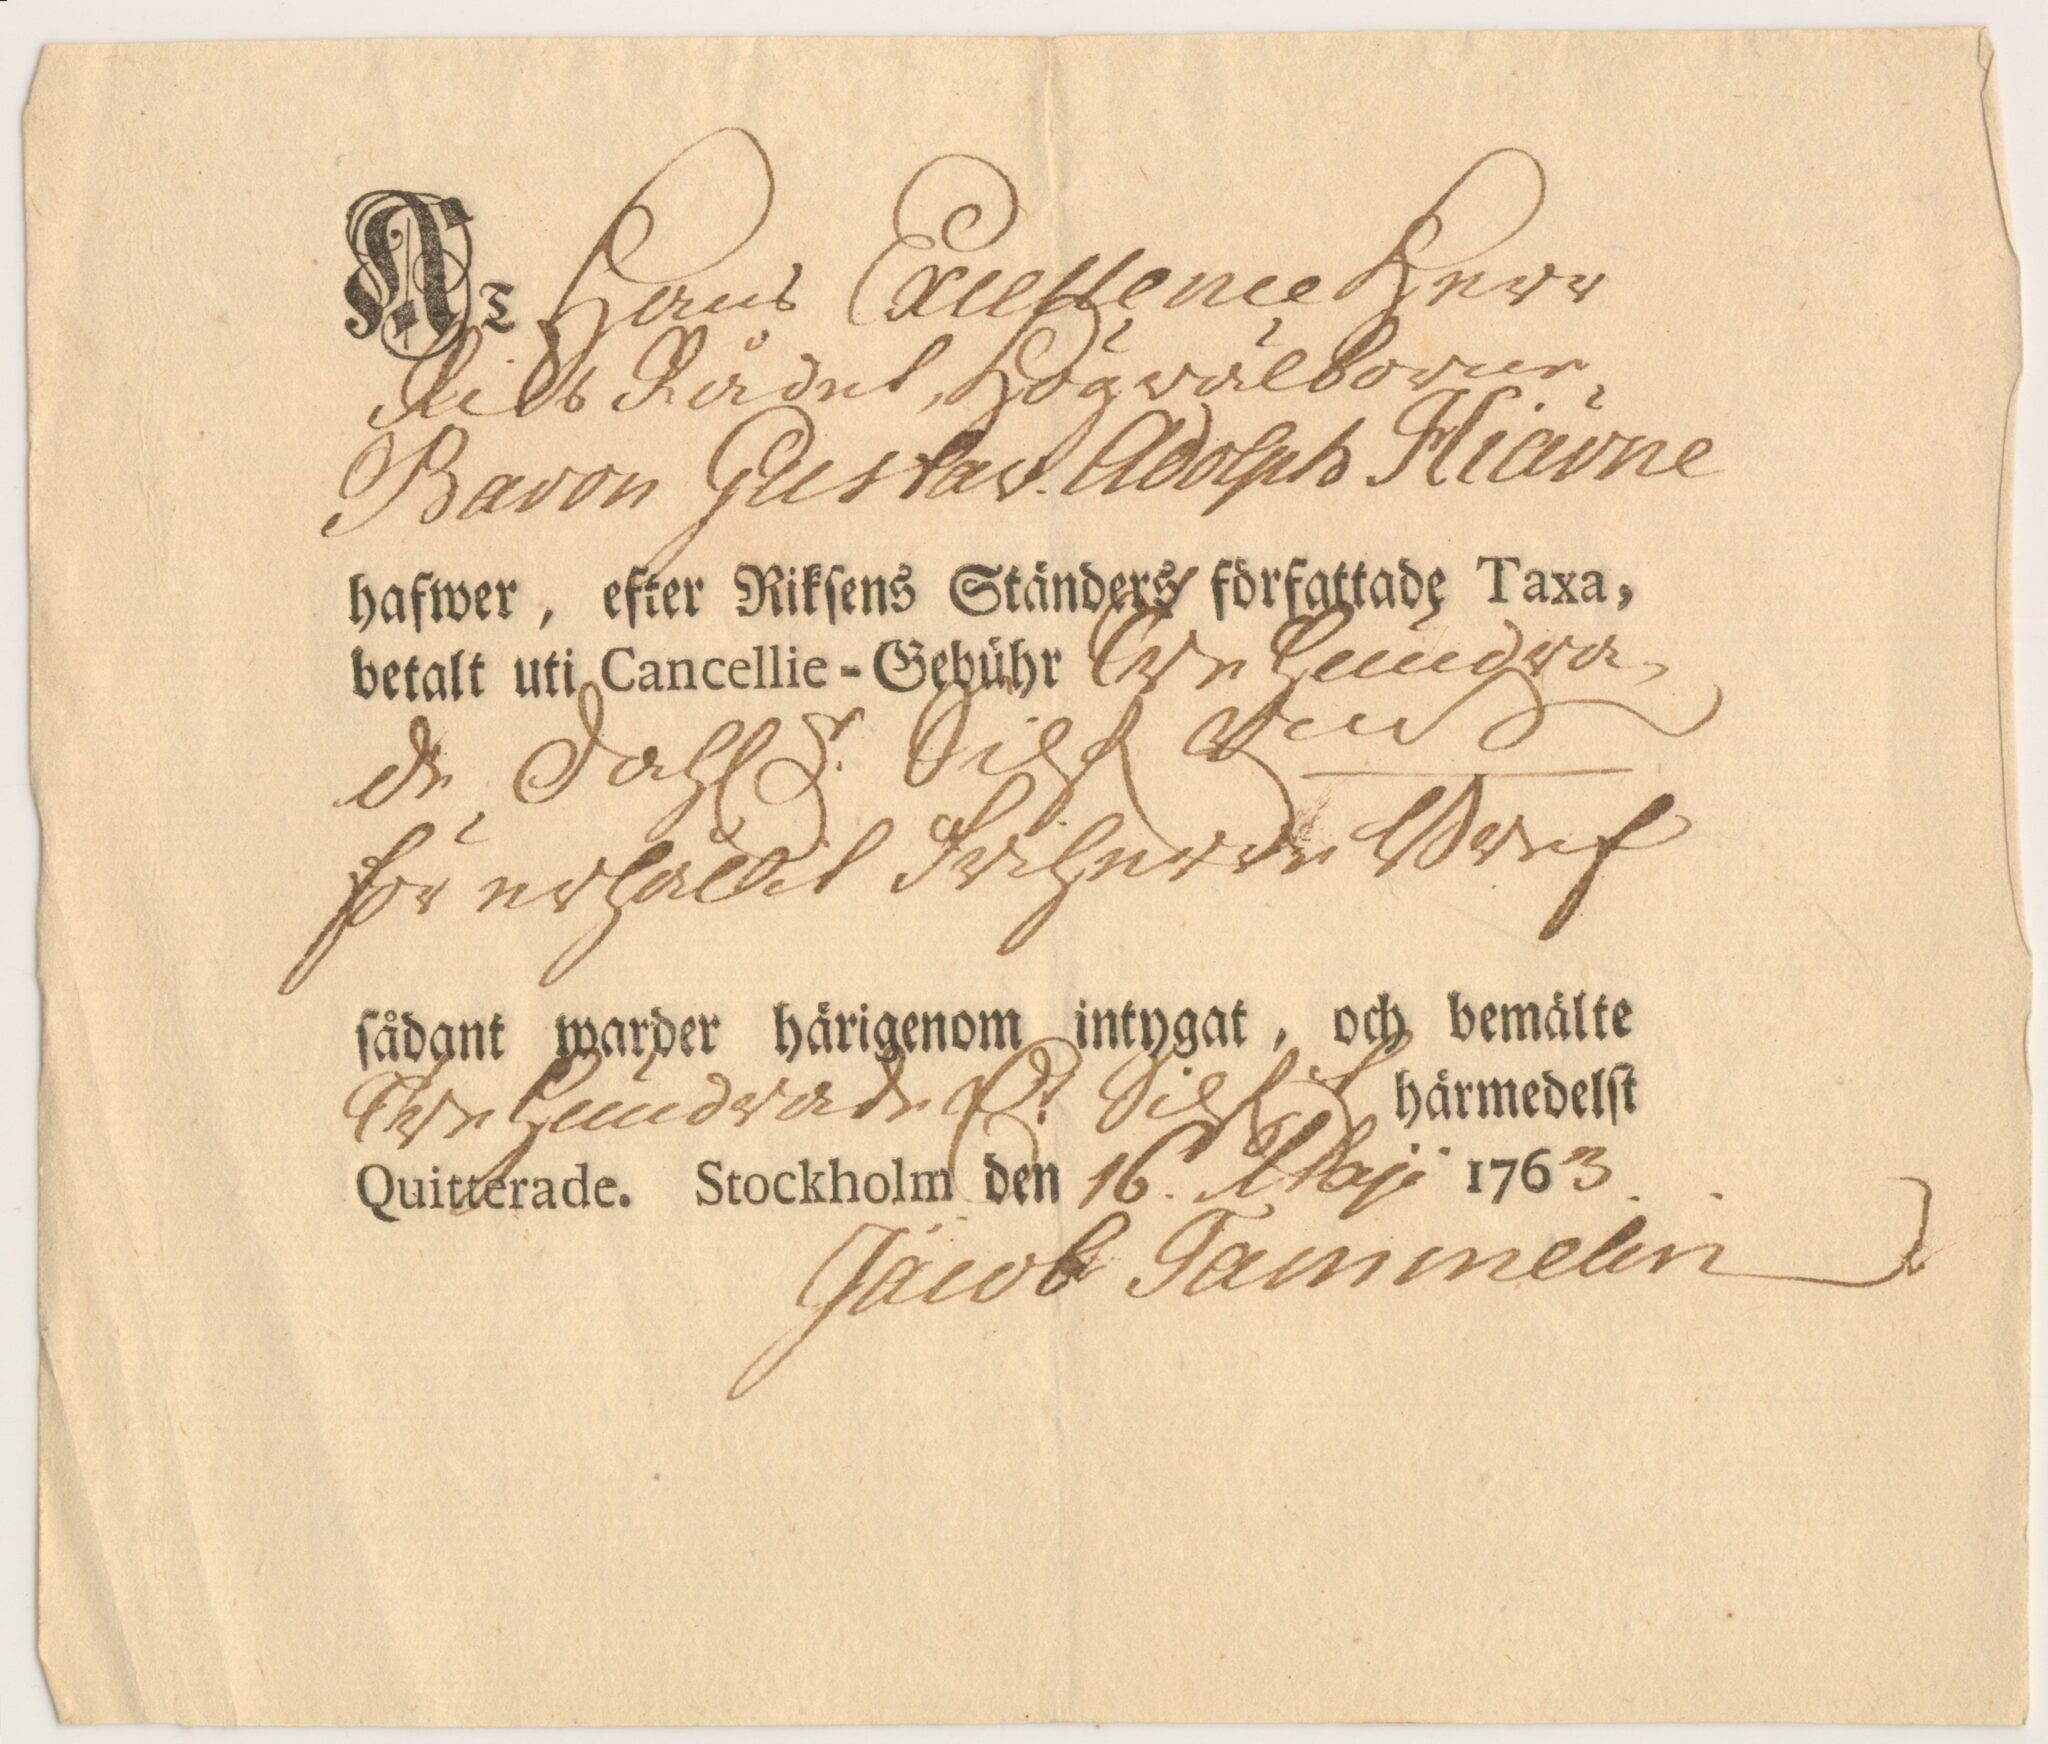 At Hans Excellence Herr
Riks Rådet, Högvälborne
Baron Gustav Adolph Hiärne
hafwer, efter Riksens Ständers författade Taxa,
betalt uti Cancellie-Gebühr Tvehundra
de Dahlr Silf mt
för erhållit Friherre Bref
sådant warder härigenom intygat, och bemälte
Tvehundrade Dr Silf mt härmedelst
Quitterade. Stockholm den 16. Maji 1763.
Jacob Tammelin